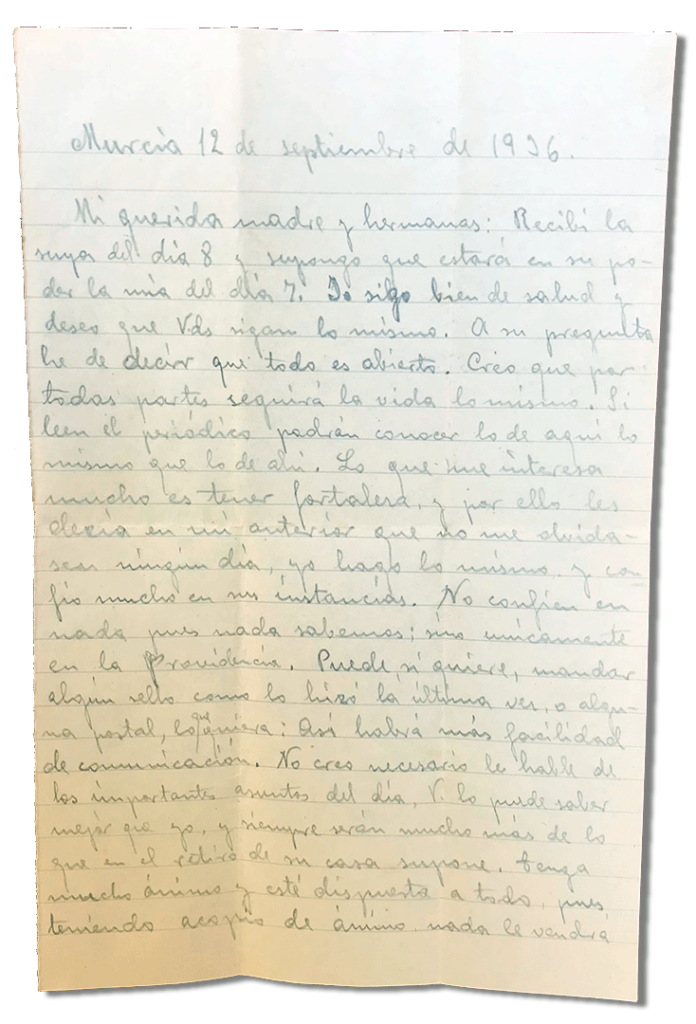 Murcia 12 de septiembre de 1936.
Mi querida madre y hermanas: Recibí la
suya del día 8 y supongo que estará en su po-
der la mía del día 7. Yo sigo bien de salud y
deseo que Vds sigan lo mismo. A su pregunta
he de decir que todo es abierto. Creo que por
todas partes seguirá la vida lo mismo. Si
leen el periódico podrán conocer lo de aquí lo
mismo que lo de ahí. Lo que me interesa
mucho es tener fortaleza, y por ello les
decía en mi anterior que no me olvida-
sen ningún día, yo hago lo mismo, y con-
fío mucho en sus instancias. No confíen en
nada pues nada sabemos; sino unicamente
en la Providencia. Puede, si quiere, mandar
algún sello como lo hizo la última vez, o algu-
na postal, lo que quiera: Así habrá más facilidad
de comunicación. No creo necesario le hable de
los importantes asuntos del día, V. lo puede saber
mejor que yo, y siempre serán mucho más de lo
que en el retiro de su casa supone. Tenga
mucho ánimo y esté dispuesta a todo, pues,
teniendo acopio de ánimo nada le vendrá